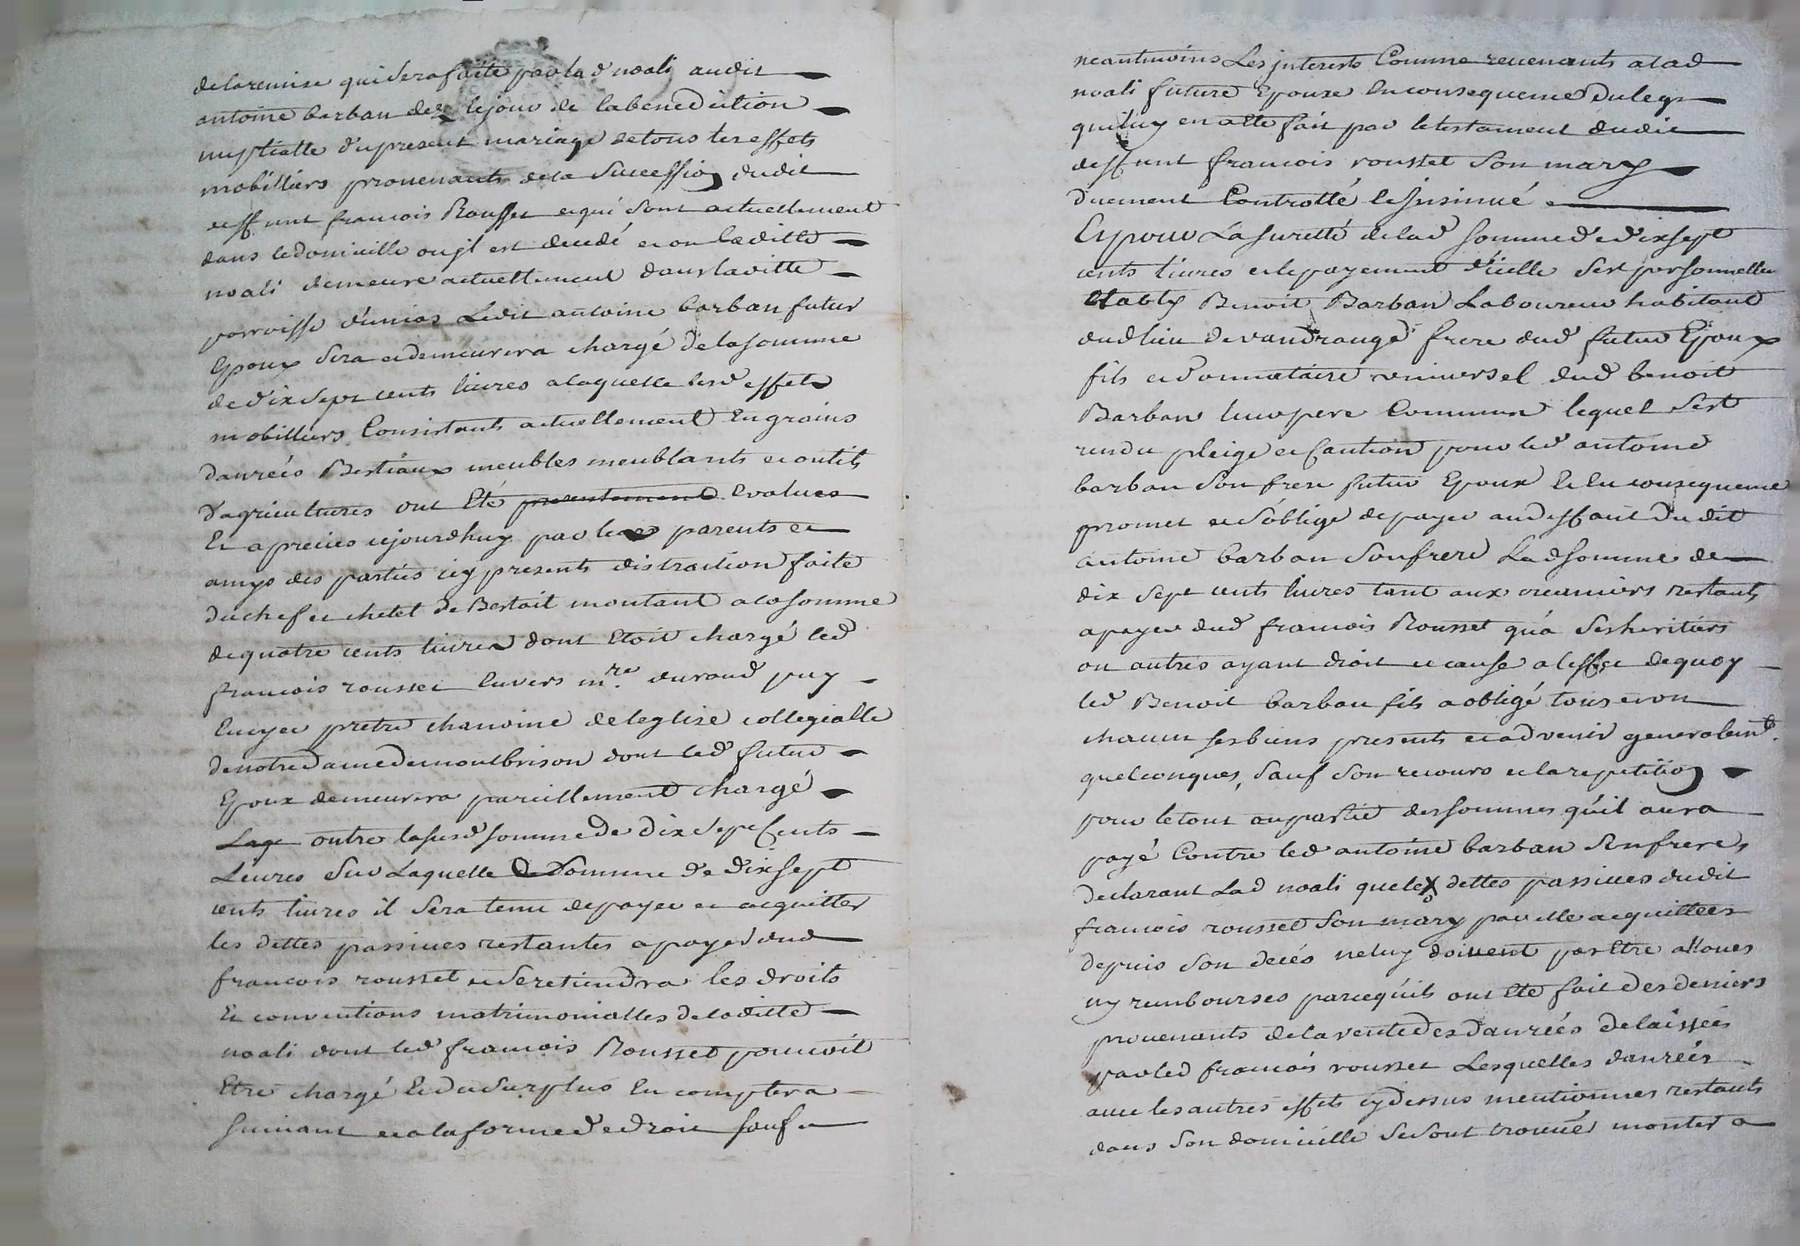 de la remise qui sera faite par la d noali audit
antoine barban des le jour de la benediction
nuptialle du present mariage de tous les effets
mobilliers provenants de la succession dudit
deffunt francois Rousset et qui sont actuellement
dans le domicille ou jl est decedé et ou laditte
noali demeure actuellement dans laditte
parroisse d'unias Ledit antoine barban futur
Epoux sera et demeurera chargé de la somme
de dix sept cents livres a laquelle lesd effets
mobilliers Consistants actuellement En grains
danrées Bestiaux meubles meublants et outils
d'agricultures ont Eté presentement evalues
Et apreciés cejourdhuy par les parents et
amys des parties icy presents distraction faite
du chef et chetel de Bestail montant a la somme
de quatre cents livres dont Etoit chargé led
francois rousset Envers mre durand puy
Envyer pretre chanoine de leglise collegialle
de notre dame de montbrison dont led futur
Epoux demeurera pareillement chargé
outre la susd somme de dix sept Cents
Livres Sur Laquelle Somme de dix sept
cents livres il sera tenu de payer et acquitter
les dettes passives restantes a payer dud
francois rousset et se retiendra les droits
Et conventions matrimonialles de laditte
noali dont led francois Rousset pouvoit
Etre chargé Et du surplus En comptera
suivant et a la forme de droit sauf
neantmoins Les jnterests Comme revenants a lad
noali future Epouse En consequence du legs
qui luy en a Eté fait par le testament dudit
deffunt francois rousset Son mary
duement Controllé et jnsinué
Et pour La suretté de lad somme de dix sept
cents livres et le payement d'icelle s'est personnellem
Etably Benoit Barban Laboureur habitant
dud lieu de vaudrange frere dud futur Epoux
fils et donnataire universel dud benoit
Barban leur pere Commun lequel s'est
rendu pleige et Caution pour led antoine
barban Son frere futur Epoux Et En consequence
promet et s'oblige de payer au deffaut dudit
antoine barban Son frere Lad Somme de
dix sept cents livres tant aux creanciers restants
a payer dud francois Rousset qu'a ses heritiers
ou autres ayant droit et cause a leffet de quoy
led Benoit barban fils a obligé tous et un
chacun ses biens presents et advenir generalemt
quelconques, sauf son recours et la repetition
pour le tout ou partie des sommes qu'il aura
payé Contre led antoine barban Son frere,
declarant Lad noali que les dettes passives dudit
francois rousset Son mary par elle acquittées
depuis Son decés ne luy doivent pas Etre alloues
ny rembourses parcequ'ils ont Eté fait des deniers
provenants de la vente des danrées delaissées
par led francois rousset Lesquelles danrées
avec les autres effets cy dessus mentionnes restants
dans Son domicille se sont trouvés monter a